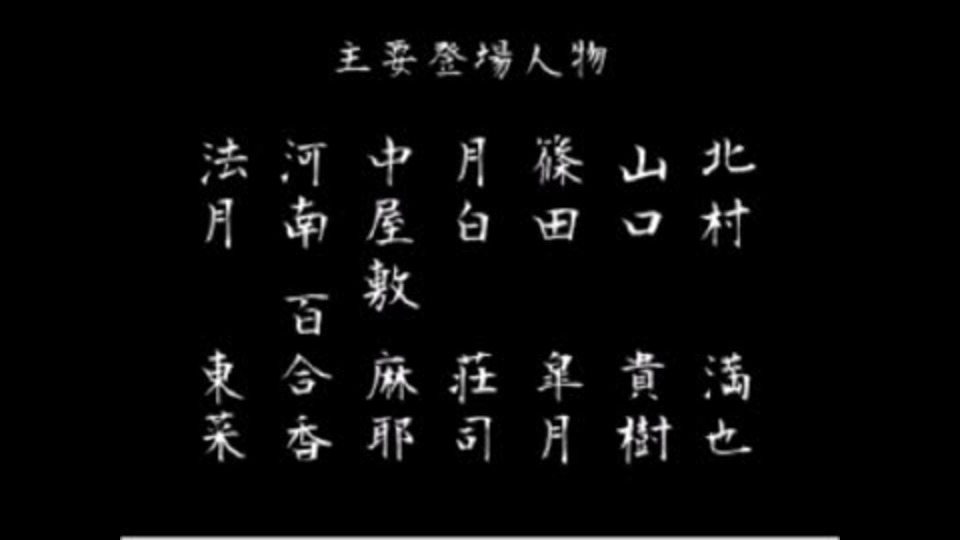 主要登場人物
北村 満也
山口 貴樹
篠田 皐月
月白 荘司
中屋敷 麻耶
河南 百合香
法月 東菜